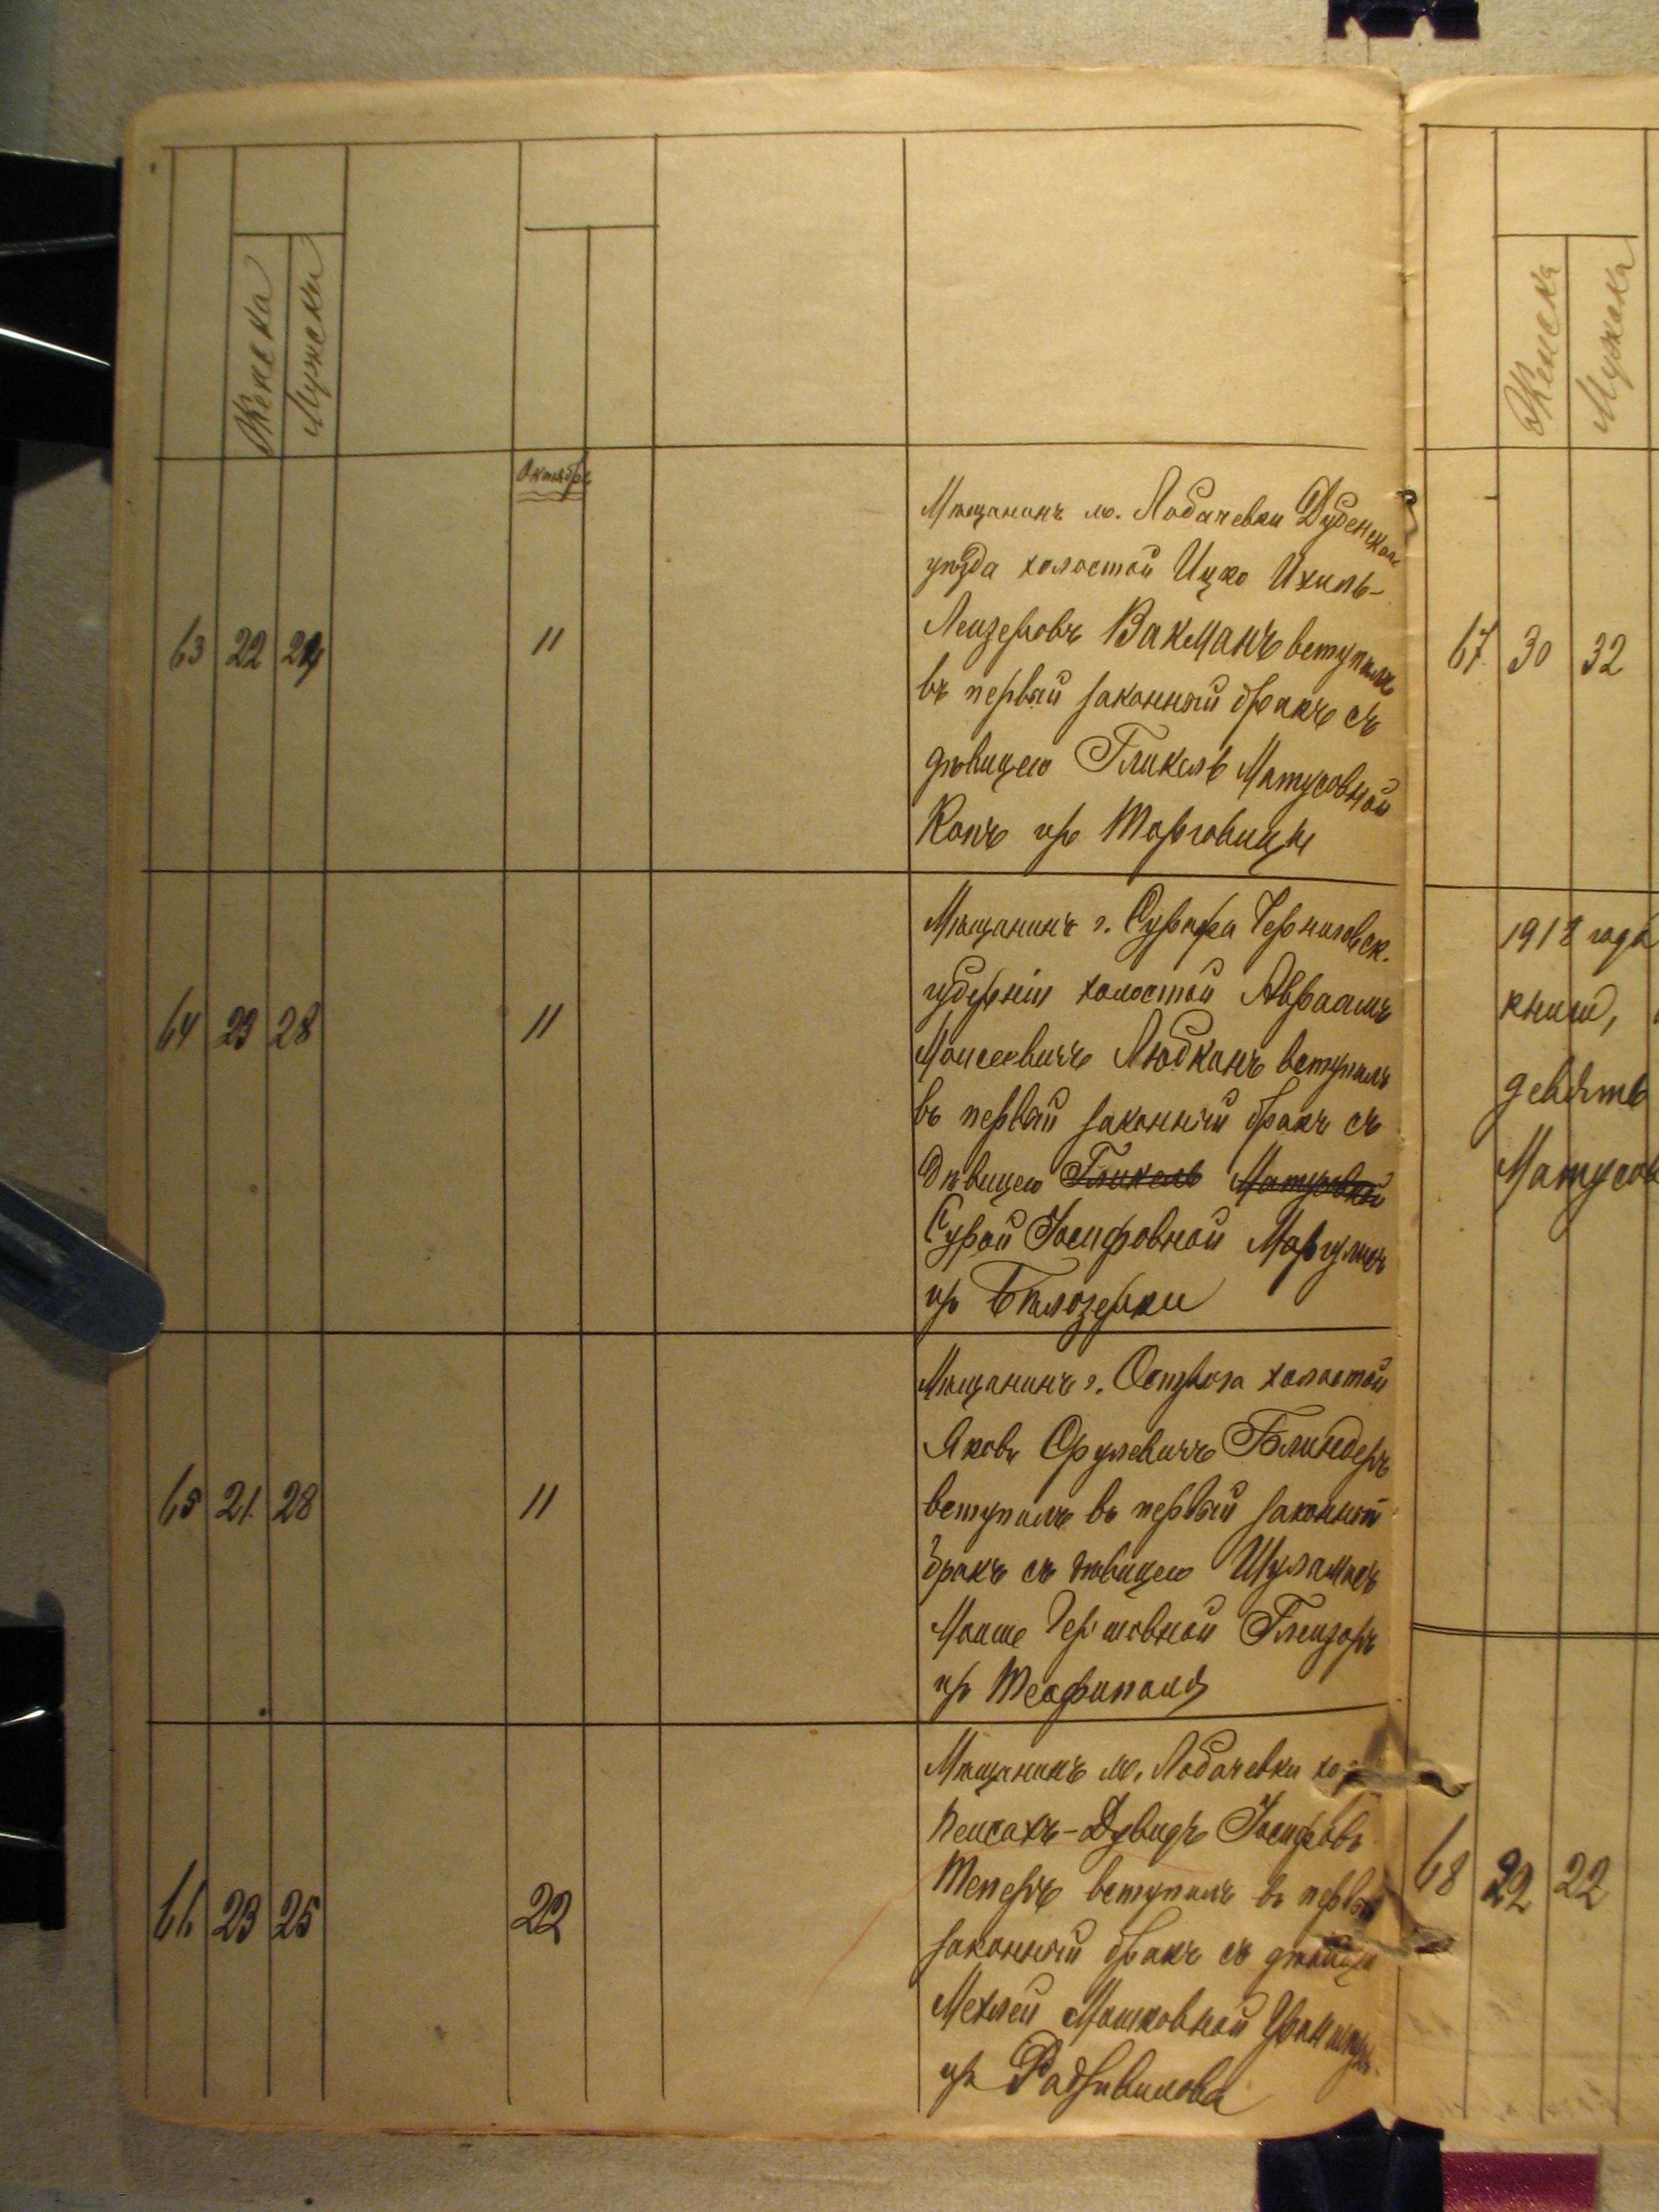 Женска
Мужски
Октября
63 22 24 11
Мѣщанинъ м. Лобачевки Дубенскаго
уѣзда холостой Ицко Ихиль-
Лейзеровъ Вакманъ вступилъ
въ первый законный бракъ съ
дѣвицею Гликель Матусовной
Копъ пр Торговицы
64 23 28 11
Мѣщанинъ г. Суража Черниговск.
губерніи холостой Авраамъ
Моисеевичъ Людканъ вступилъ
въ первый законный бракъ съ
дѣвицею Гликель Матусовной
Сурой Іосифовной Маргулисъ
пр Бѣлозерки
65 21 28 11
Мѣщанинъ г. Острога холостой
Яковъ Срулевичъ Блиндеръ
вступилъ въ первый законный
бракъ съ дѣвицею
Гершовной Глейзеръ
пр Теофиполя
66 23 25 22
Мѣщанинъ м. Лобачевки хо
Пейсахъ-Дувидъ Іосифовъ
Теперъ вступилъ въ первый
законный бракъ съ дѣвице
Мехлей Мошковной
пр Радзивилова
Женска
Мужска
67 30 32
1918 года
книш,
девять
Матусов
68 22 22